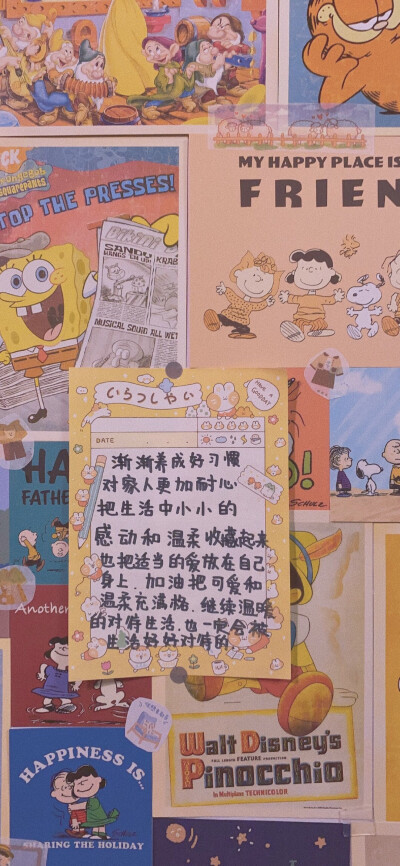 CK
SpongeBob
SquarePants
TOP THE PRESSES!
SANDY
HANGS EN UP!
KRAB
MUSICAL SQUID ALL WET
MY HAPPY PLACE IS
FRIEN
いらっしゃい
HAVE A
GOODDAY
DATE
渐渐养成好习惯
对家人更加耐心
把生活中小小的
感动和温柔收藏起来
也把适当的爱放在自己
身上.加油把可爱和
温柔充满格.继续温暖
的对待生活.也一定会被
生活好好对待的
HA
FATHE
SCHULZ
Another
HAPPINESS IS...
SHARING THE HOLIDAY
Walt Disney's
FULL LENGTH FEATURE PRODUCTION
Pinocchio
In Multiplane TECHNICOLOR